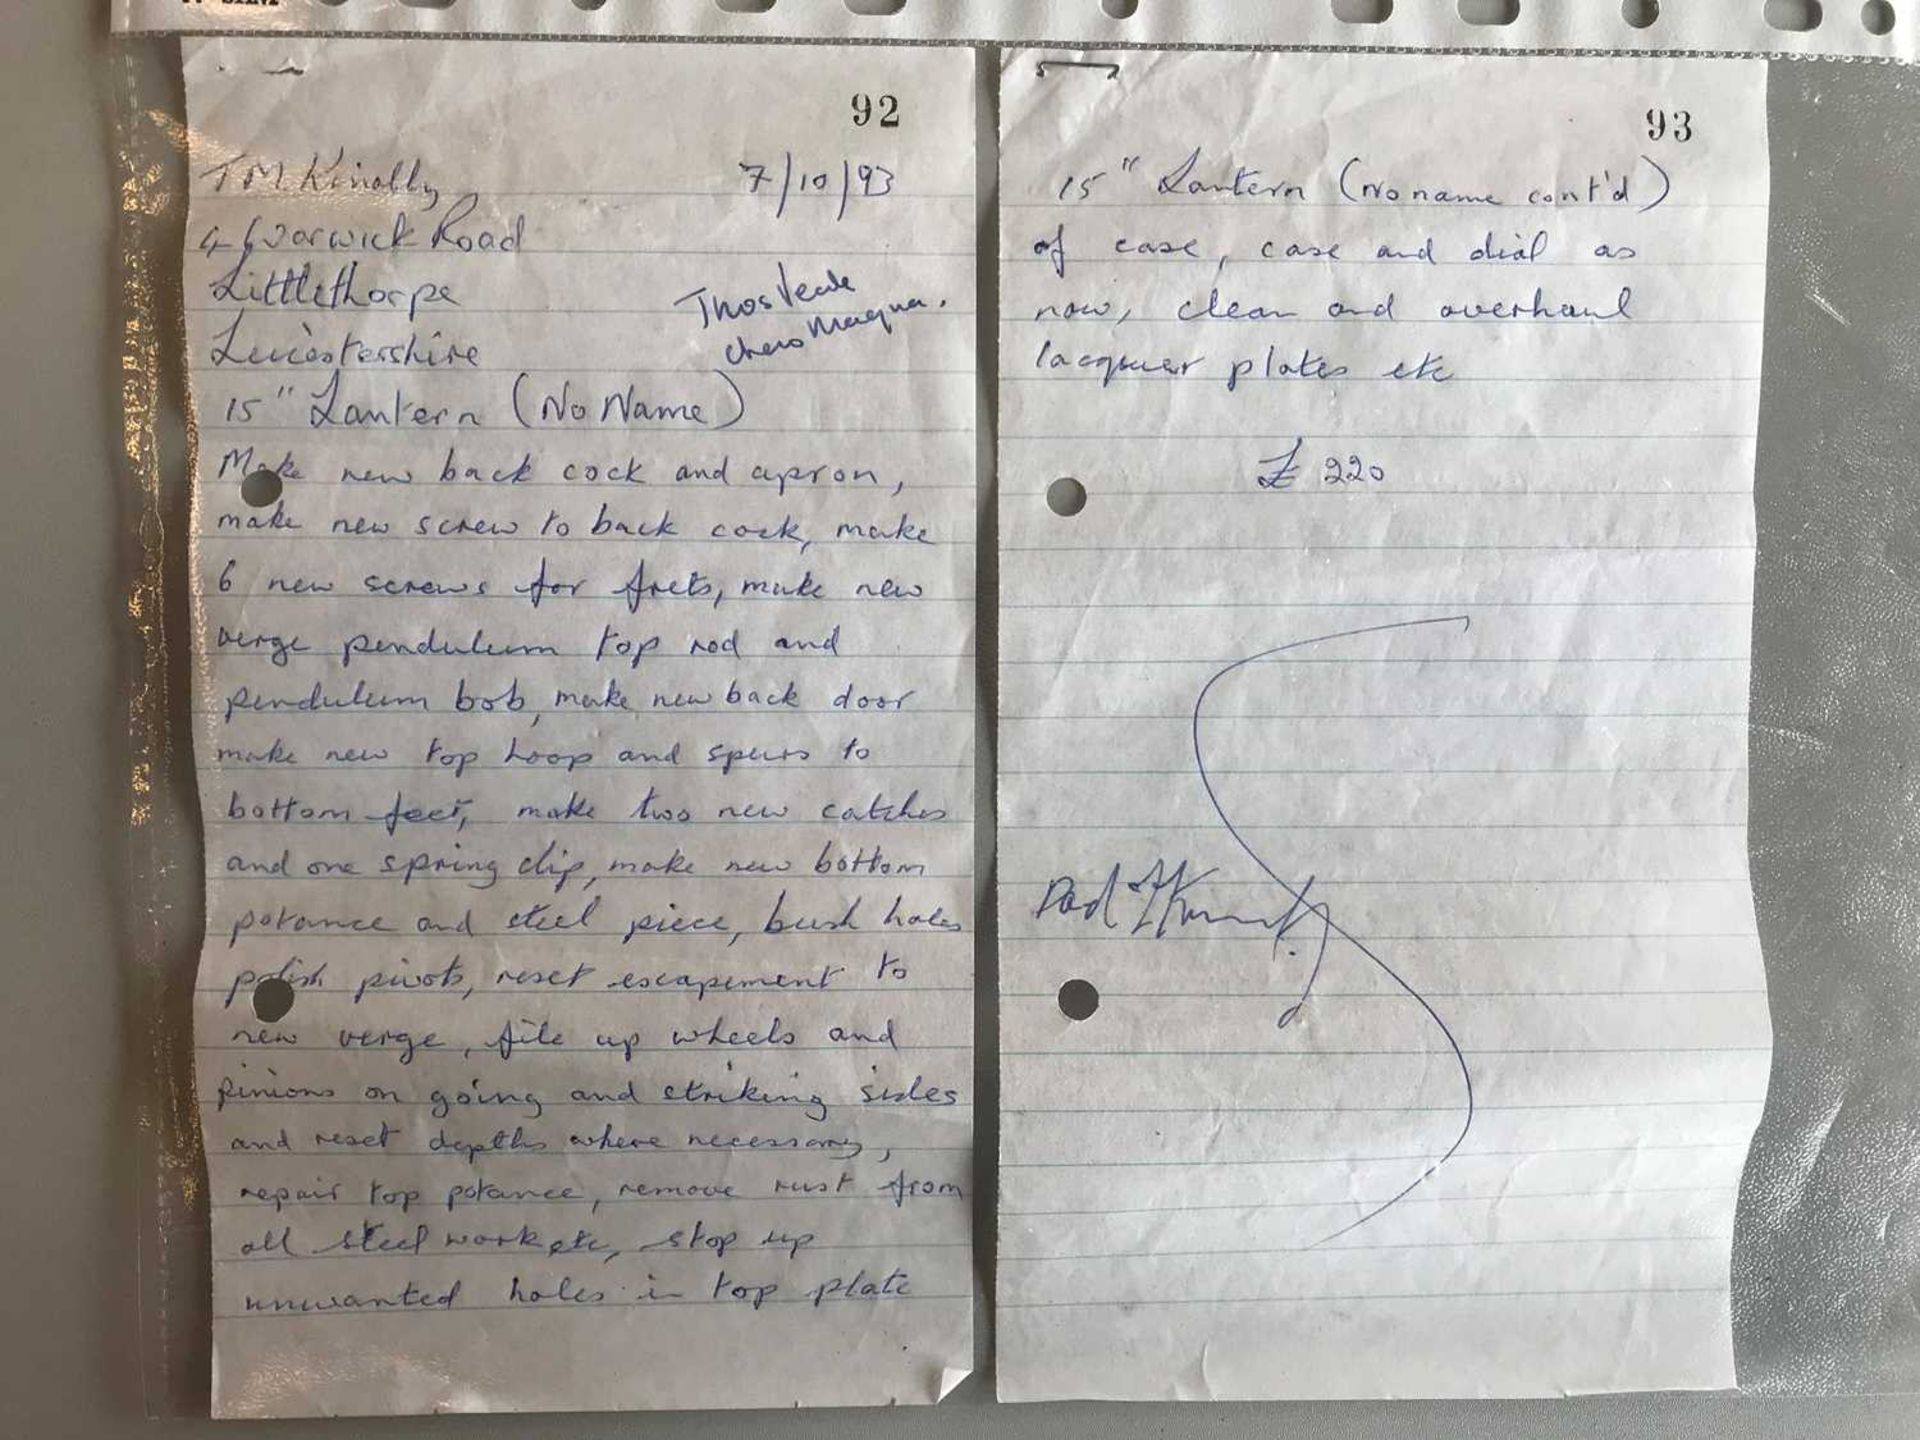 92
7/10/93
4 Warwick Road
Littlethorpe
Leicestershire
Thos Veale
Chew Magna.
15" Lantern (No Name)
Make new back cock and apron,
make new screw to back cock, make
6 new screws for frets, make new
verge pendulum top rod and
pendulum bob, make new back door
make new top hoop and spurs to
bottom feet, make two new catches
and one spring clip, make new bottom
potance and steel piece, bush holes
polish pivots, reset escapement to
new verge, file up wheels and
pinions on going and striking sides
and reset depths where necessary,
repair top potance, remove rust from
all steel work etc, stop up
unwanted holes in top plate
93
15" Lantern (No name cont'd)
of case, case and dial as
now, clean and overhaul
lacquer plates etc
£ 220